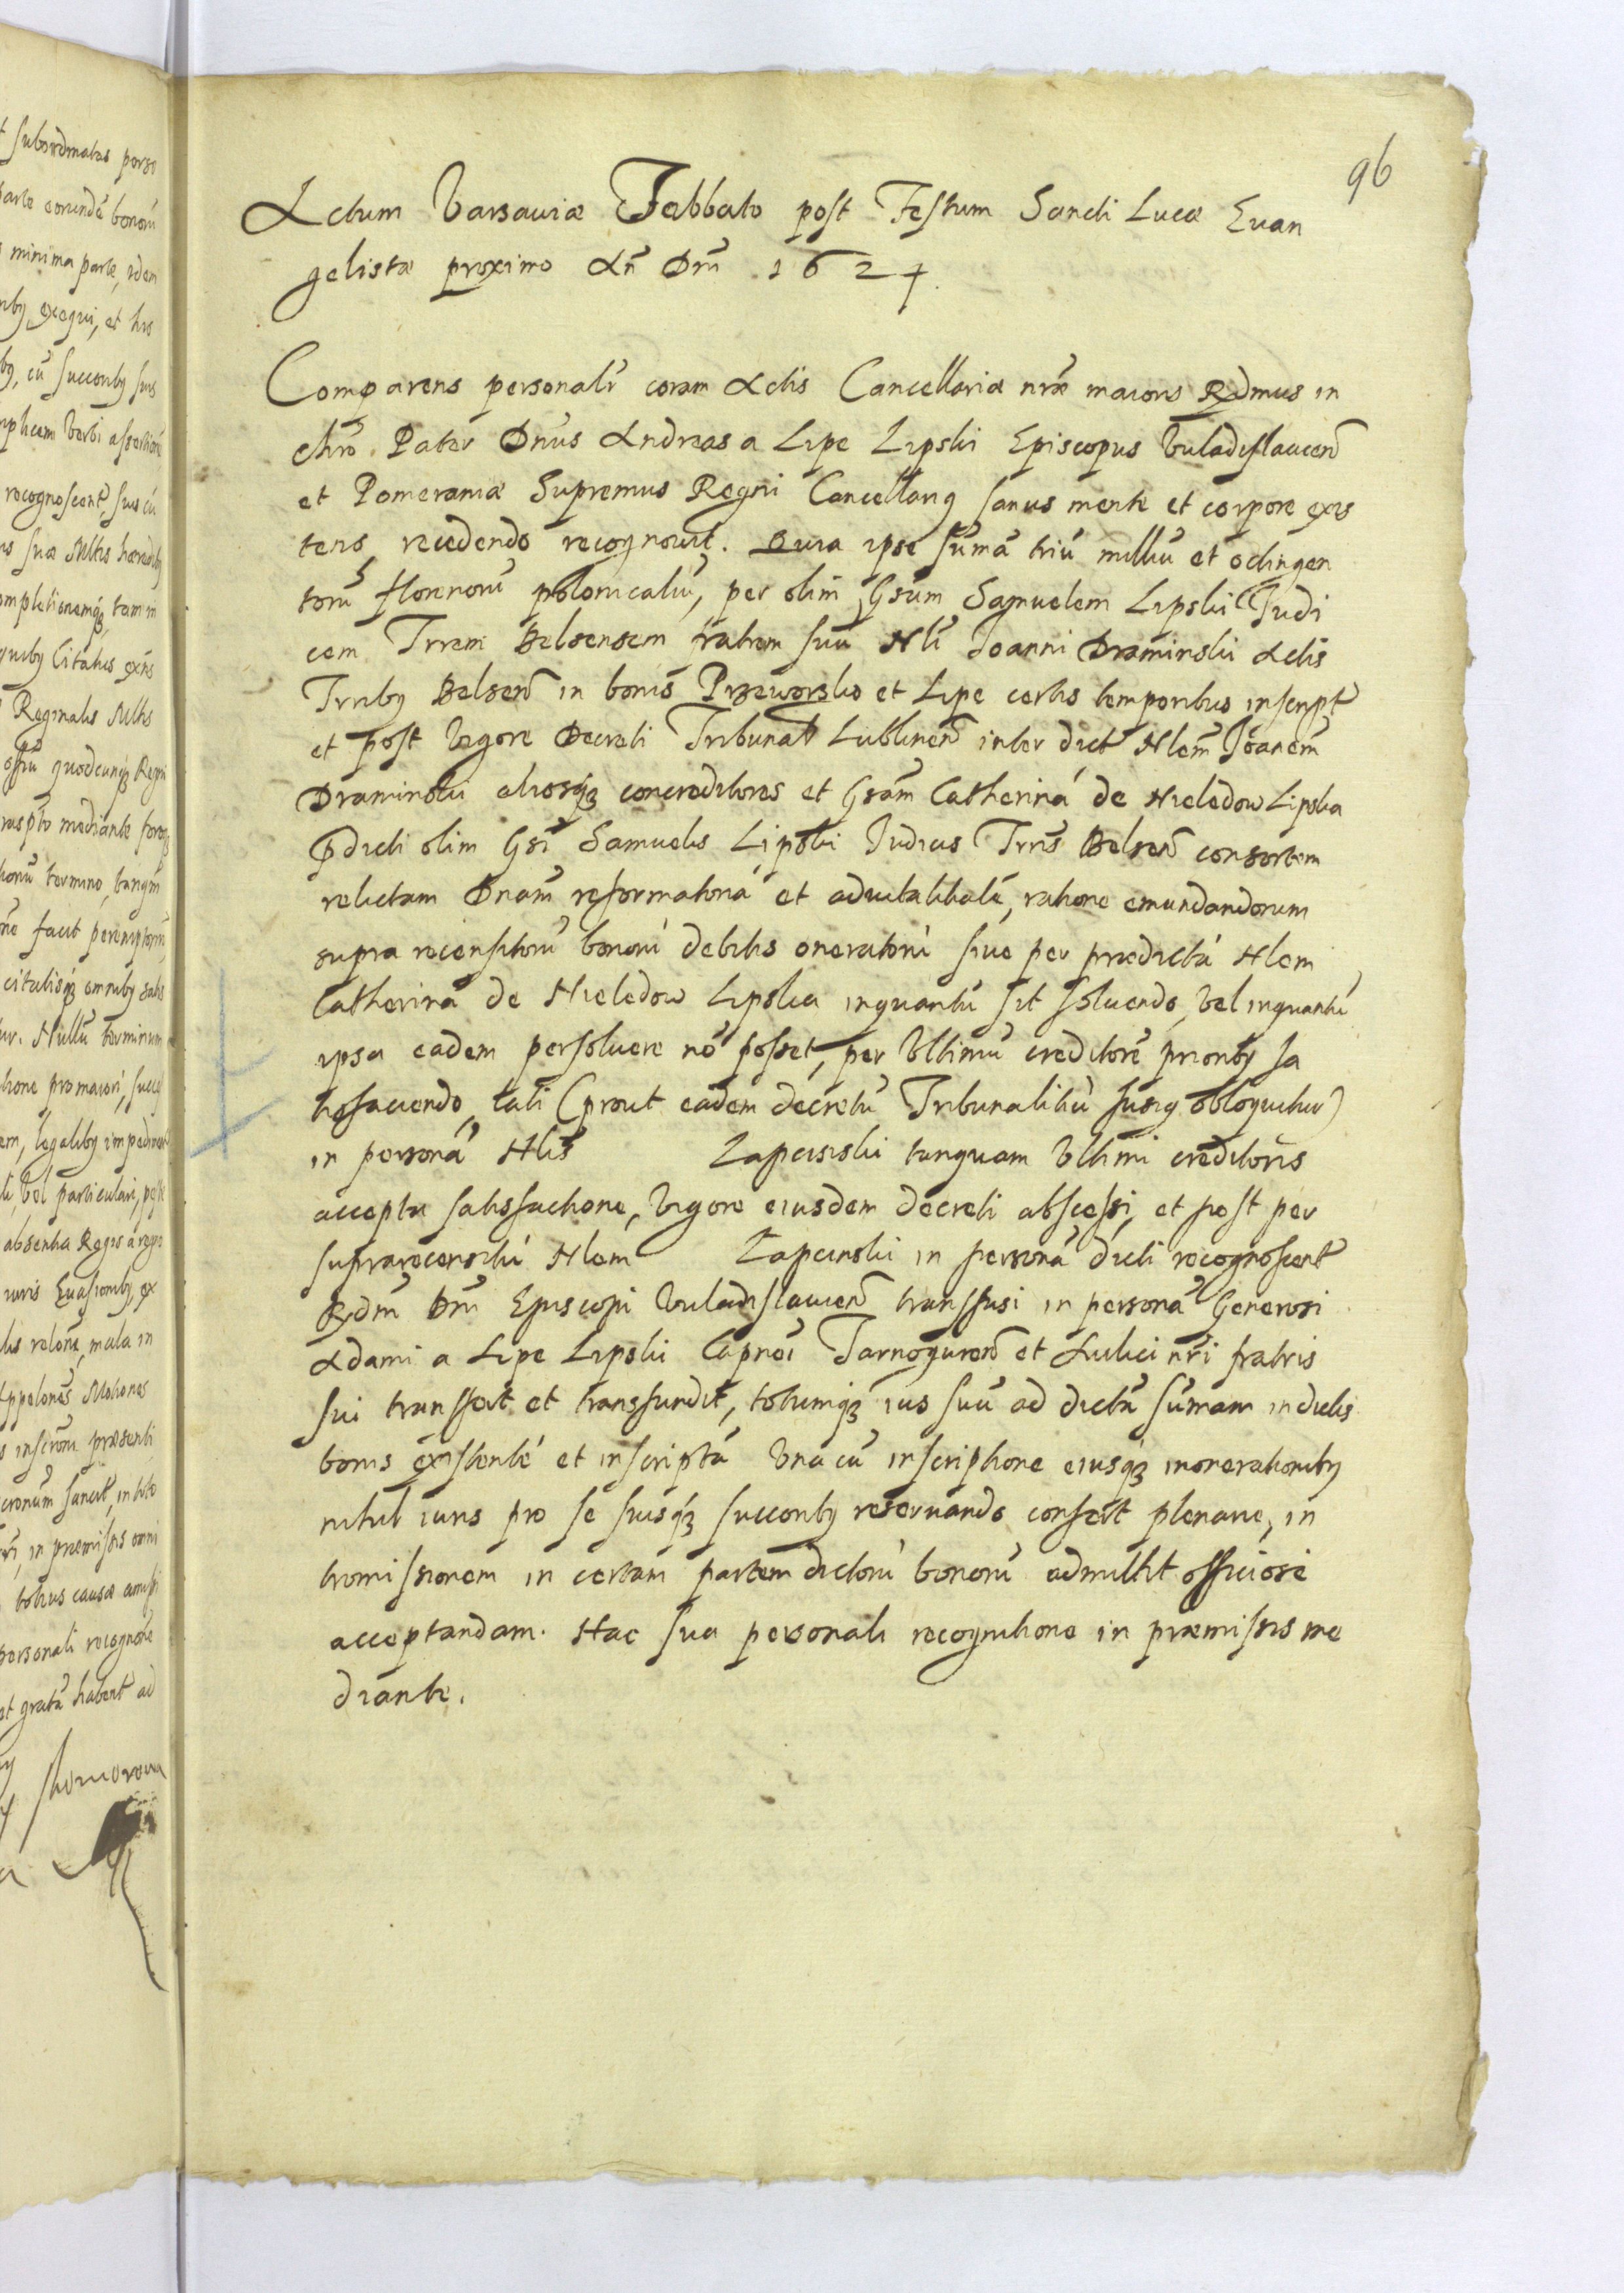 96
Actum Varsauiæ Sabbato post Festum Sancti Lucæ Euan
gelistæ proximo An̄ Dnī 1624.
Comparens personalr̄ coram Actis Cancellariæ nrǣ maioris Rdmus in
Chrō Pater Dn̄us Andreas a Lipe Lipski Episcopus Vuladislauien̄
et Pomeraniæ Supremus Regni Cancellariꝰ sanus mente et corpore exis
tens, recedendo recognouit. Quia ipse sūmā triū milliū et octingen
torū florenorū polonicaliū, per olim Gsum Samuelem Lipski Iudi
cem Trrem Belsensem fratrem suū Nli Ioanni Draminski Actis
Trribꝰ Belsen̄ in bonis Przeworsko et Lipe certis temporibus inscript̄
et post vigore Decreti Tribunal̄ Lublinen̄ inter dict̄ Nlem̄ Ioānem
Draminski aliosqꝫ concreditores et Gsām Catherinā de Nieledow Lipska
p̄dicti olim Gsi Samuelis Lipski Iudicis Trris̄ Belsen̄ consortem
relictam Dnam̄ reformatoriā et aduitalitalē, ratione emundandorum
supra recensitorū bonorū debitis oneratorū siue per prædictā Nlem
Catherinā de Nieledow Lipska inquantū sit soluendo, vel inquantū
ipsa eadem persoluere nō posset, per vltimū creditorē prioribꝰ sa
tisfaciendo, tali (prout eadem decretū Tribunalitiū fusiꝰ obloquitur)
in personā Nlis̄ Zapcisiski tanquam vltimi creditoris
accepta satisfactione, vigore eiusdem decreti abscessi, et post per
suprarecensitū Nlem Zapcinski in personā dicti recognoscent̄
Rdm̄ Dnī Episcopi Vuladislauien̄ transfusi in personā Generosi
Adami a Lipe Lipski Capnei Tarnoguren̄ et Aulici nrī fratris
sui transfert et transfundit, totumqꝫ ius suū ad dictā sūmam in dictis
bonis existentē et inscriptā vna cū inscriptione eiusqꝫ inonerationibꝰ
nihil iuris pro se suisqꝫ succoribꝰ reseruando confert plenarie, in
tromissionem in certam partem dictorū bonorū admittit officiose
acceptandam. Hac sua personali recognitione in præmissis me
diante.